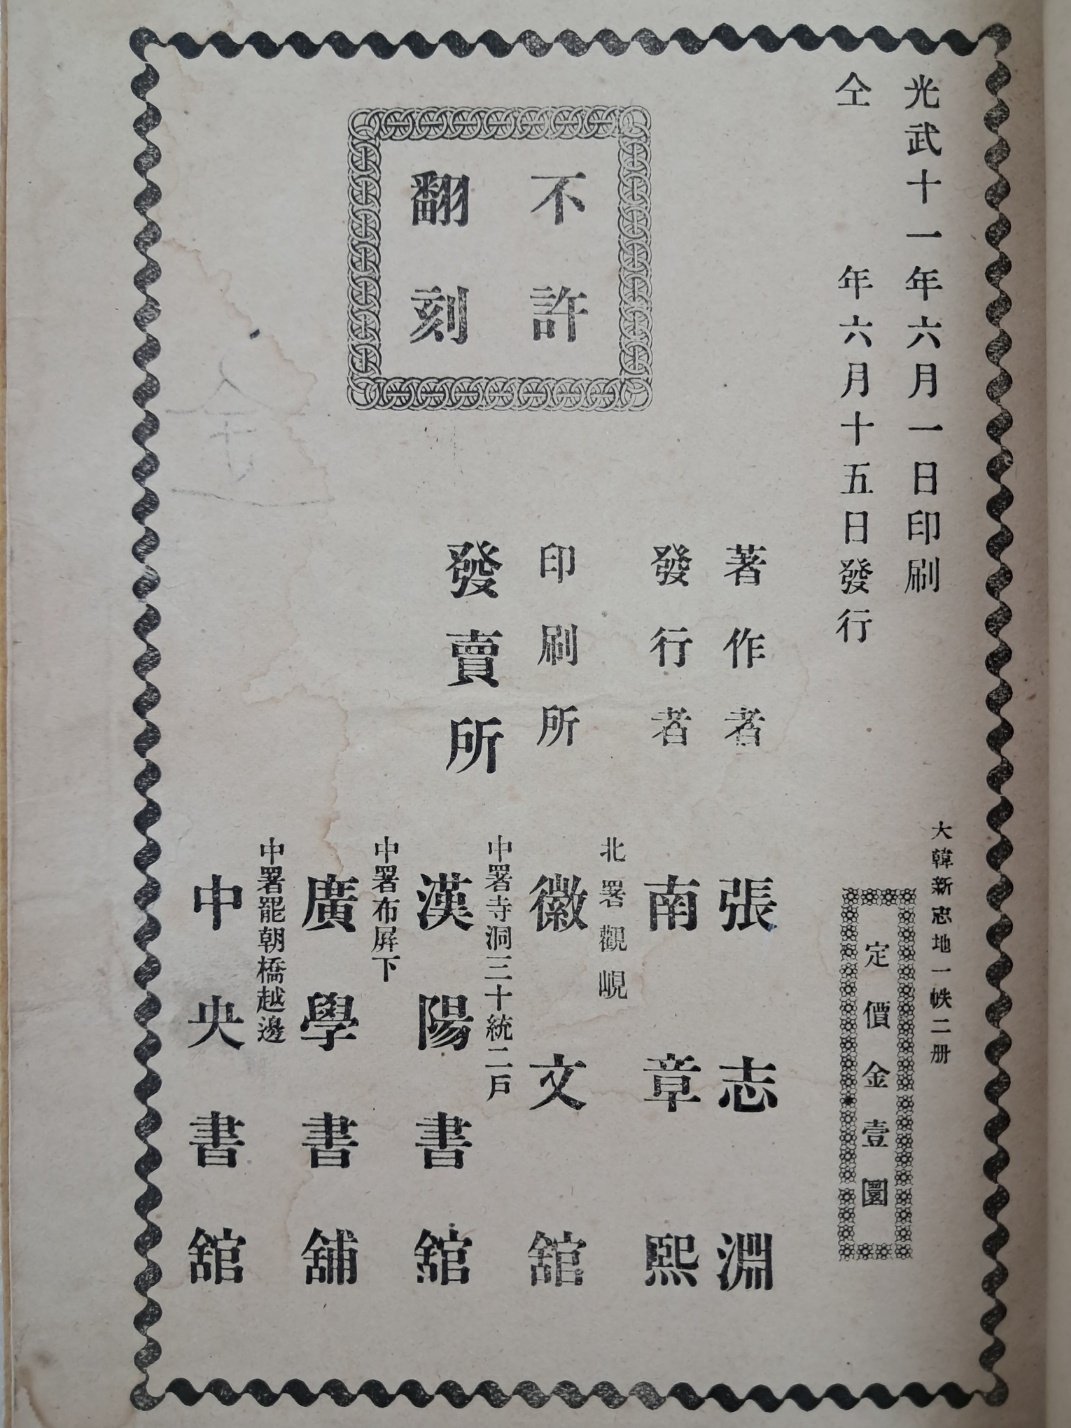 光武十一年六月一日印刷
仝 年六月十五日發行
不許
翻刻
大韓新志地一帙二册
定價金壹圜
著作者 張志淵
發行者 南章熙
北署觀峴
印刷所 徽文舘
發賣所
中署寺洞三十統二戶
漢陽書舘
中署布屛下
廣學書舖
中署罷朝橋越邊
中央書舘